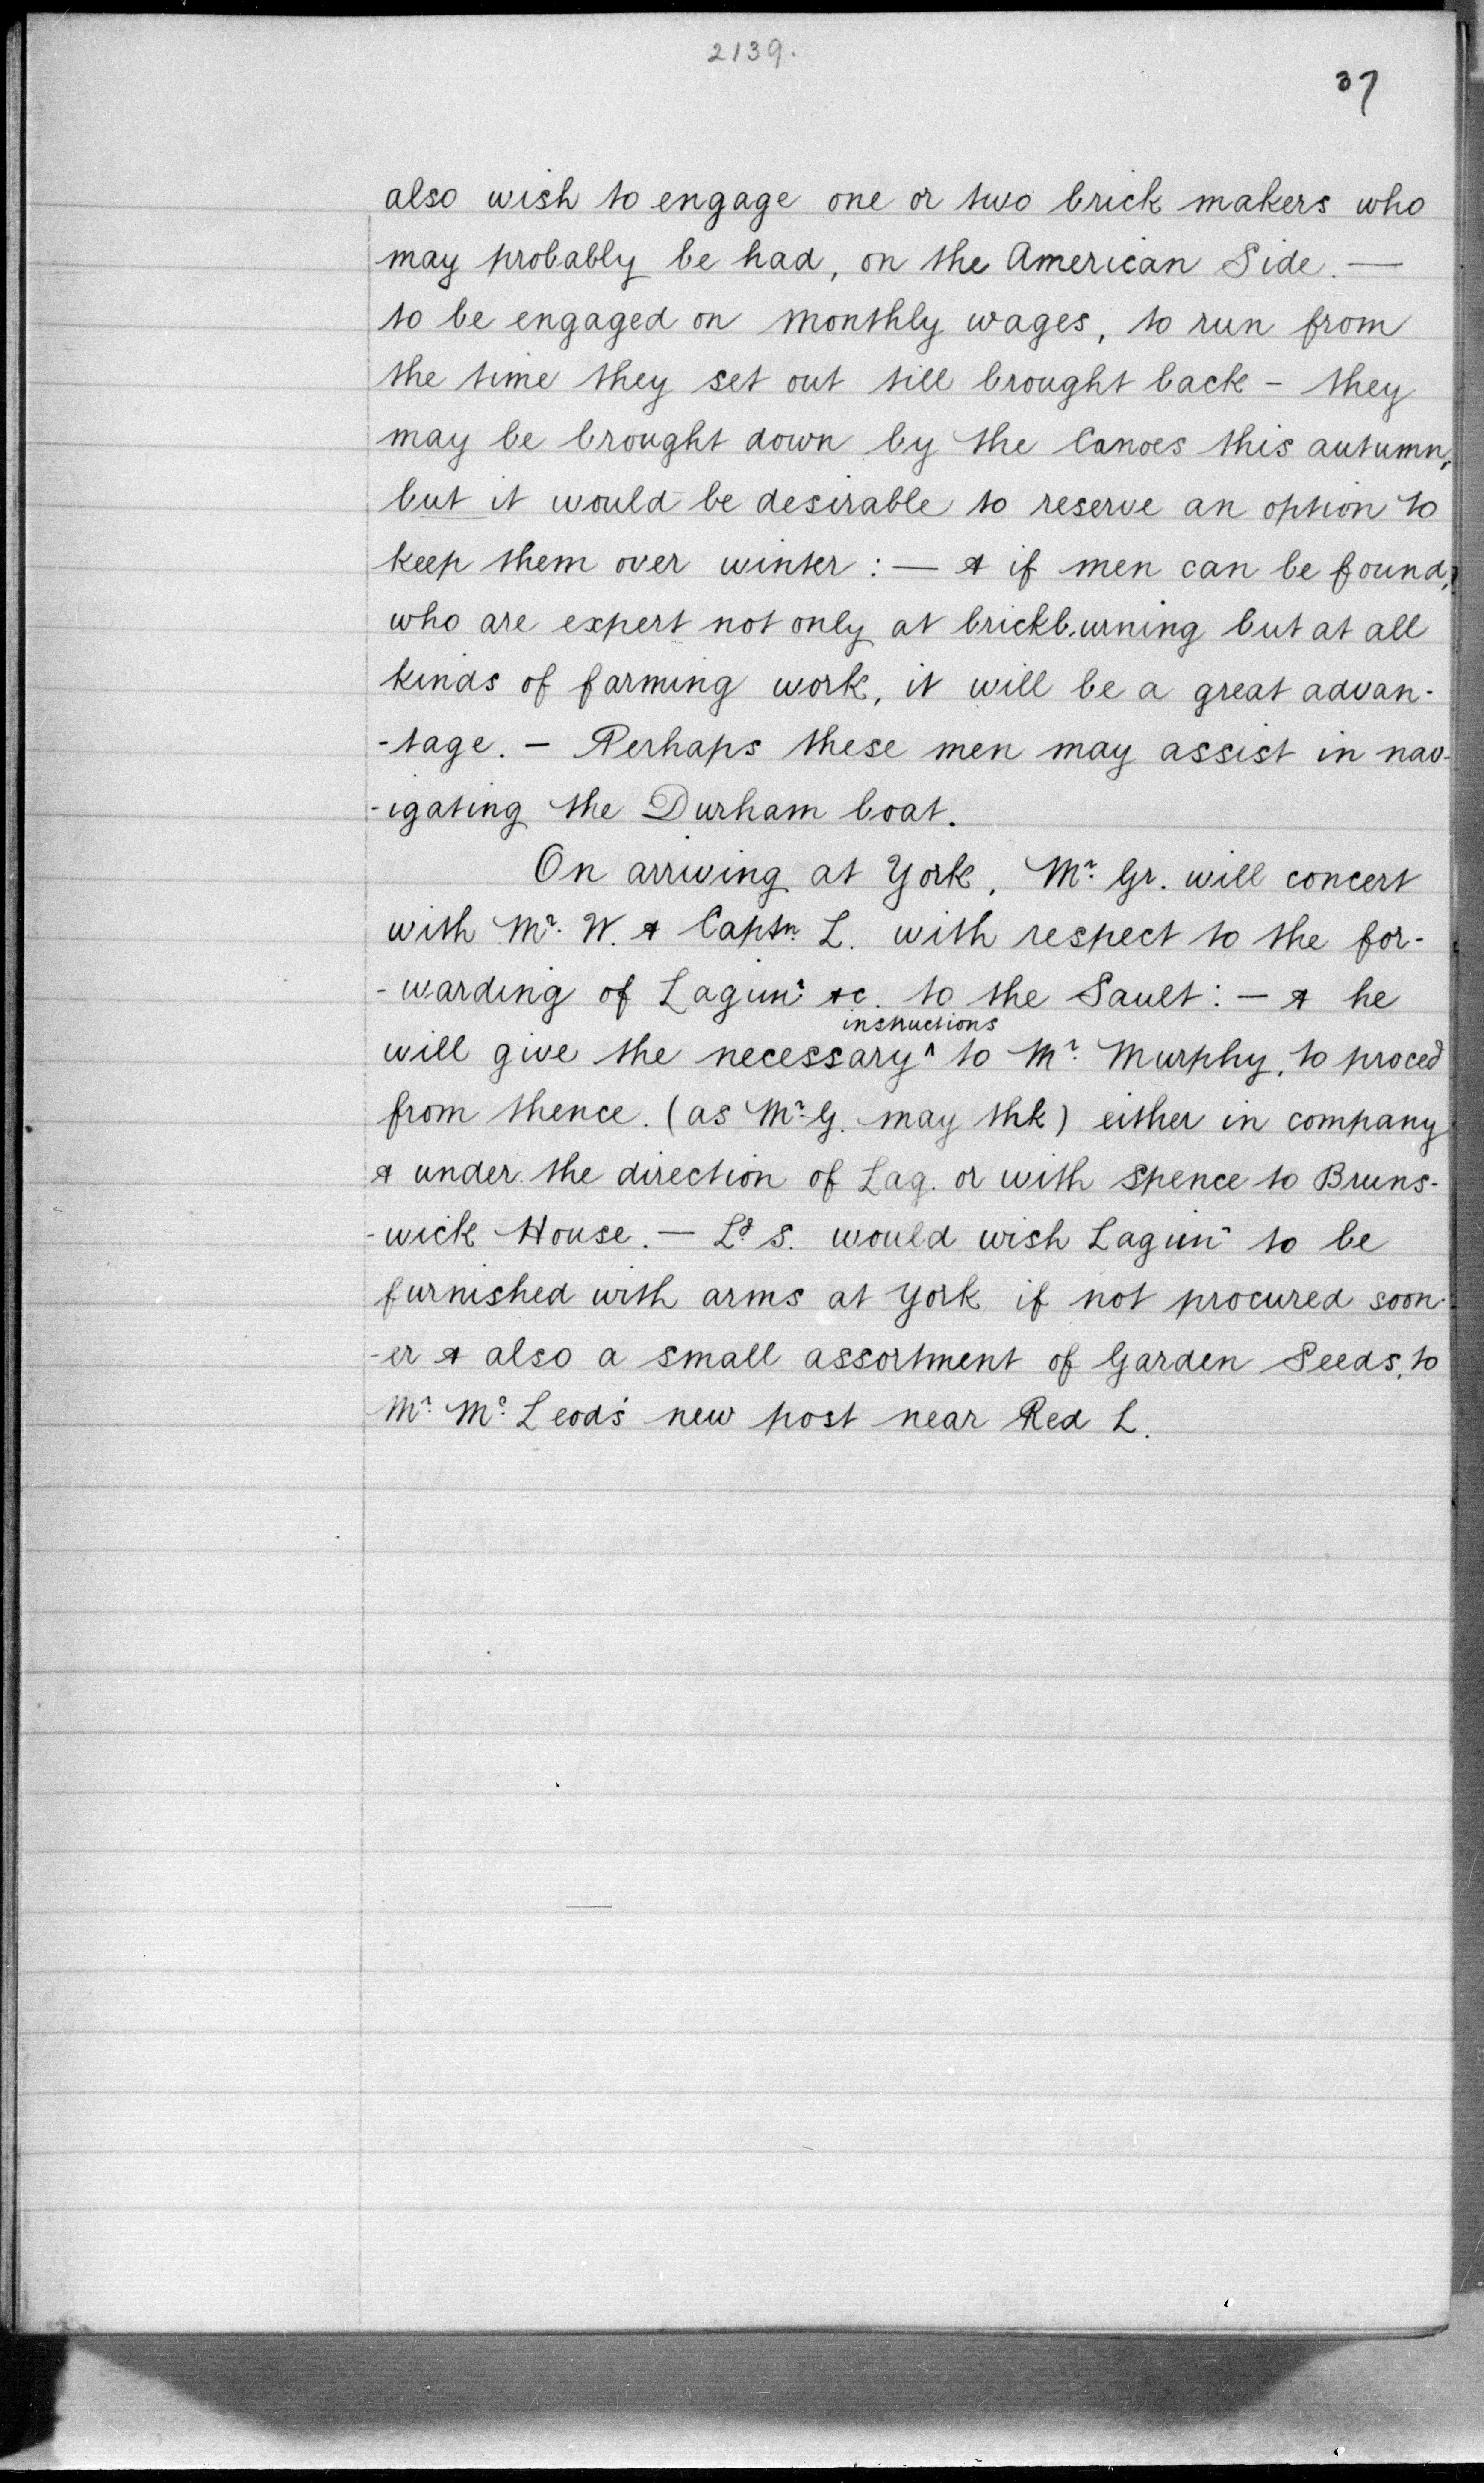 2139.
37
also wish to engage one or two brick makers who
may probably be had, on the American Side. —
to be engaged on monthly wages, to run from
the time they set out till brought back – they
may be brought down by the Canoes this autumn,
but it would be desirable to reserve an option to
keep them over winter : — & if men can be found,
who are expert not only at brickburning but at all
kinds of farming work, it will be a great advan-
-tage. – Perhaps these men may assist in nav-
-igating the Durham boat.
On arriving at York, Mr. Gr. will concert
with Mr. W. & Captn. L. with respect to the for-
-warding of Lagimr. &c. to the Sault : – & he
instructions
will give the necessary ^ to Mr. Murphy, to proced
from thence. (as Mr. G. may thk) either in company
& under the direction of Lag. or with Spence to Bruns-
-wick House. — Ld. S. would wish Lagimr to be
furnished with arms at York if not procured soon-
-er & also a small assortment of Garden Seeds, to
Mr. Mc. Leod's new post near Red L.